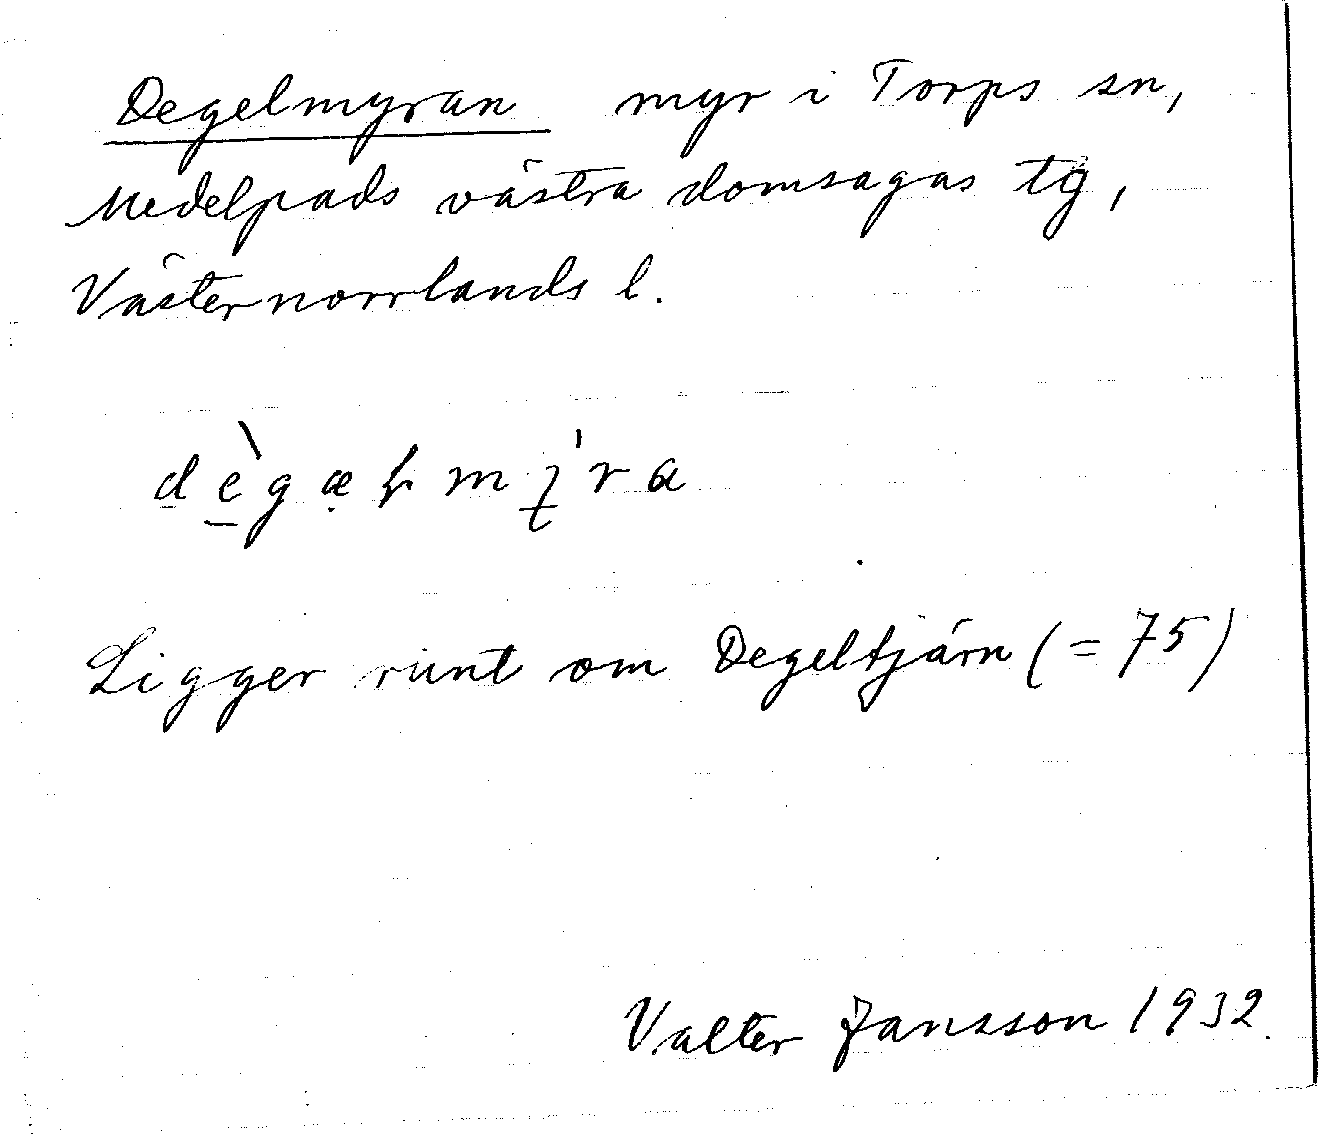 Degelmyran myr i Torps sn,
Medelpads västra domsagas tg,
Västernorrlands l.
Ligger runt om Degeltjärn (= 75)
Valter Jansson 1932.